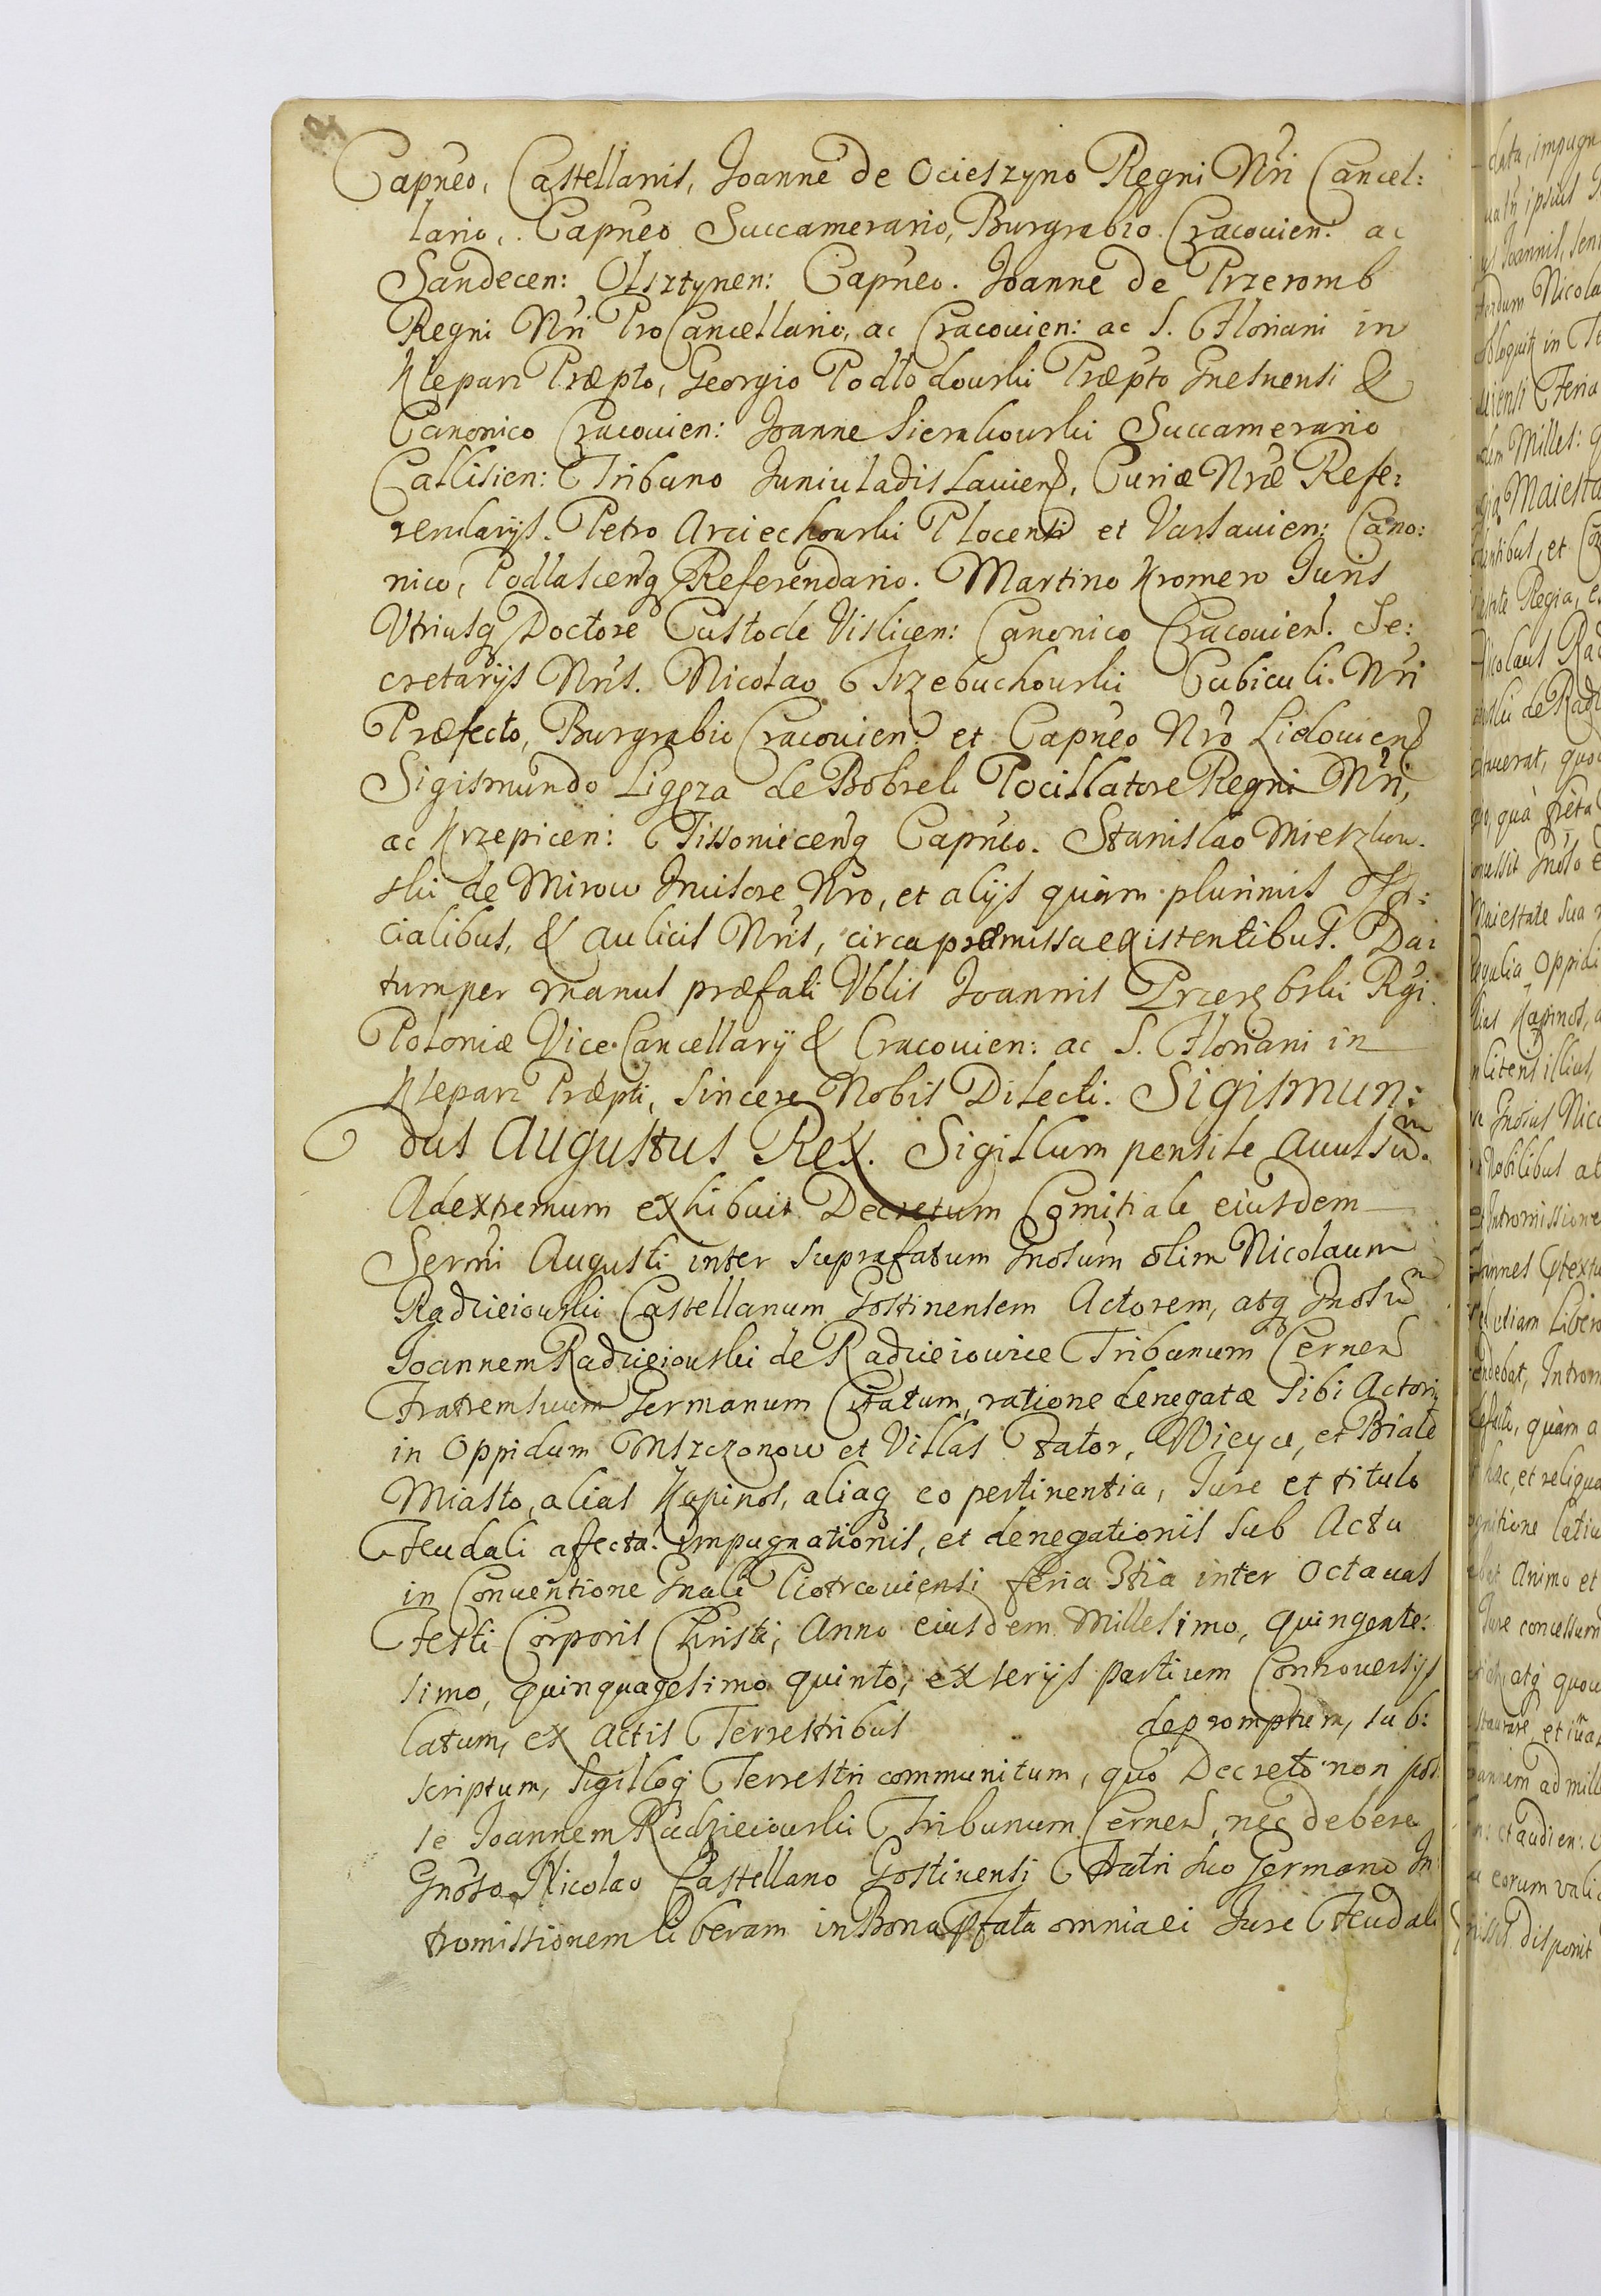 Capneo, Castellanis, Joanne de Ocieszyno Regni Nri Cancel:
lario, Capneo Succamerario, Burgrabio Cracouien: ac
Sandecen: Olsztynen: Capneo. Joanne de Przeromb
Regni Nri ProCancellario, ac Cracouien: ac S. Floriani in
Klepari Præpto, Georgio Podlodouski Præpto Gnesnensi &
Canonico Cracouien: Joanne Sierakouski Succamerario
Callisien: Tribuno Juniuladislauien, Curiæ Nræ Refe:
rendarijs. Petro Arciechouski Plocensi et Varsauien: Cano:
nico, Podlascenq Referendario. Martino Kromero Juris
Vtriusq Doctore Custode Vislicen: Canonico Cracouien. Se:
cretarijs Nris. Nicolao Trzebuchouski Cubiculi Nri
Præfecto, Burgrabio Cracouien: et Capneo Nro Lidouien
Sigismundo Ligęza de Bobrek Pocillatore Regni Nri,
ac Krzepicen: Tissouiecenq Capneo. Stanislao Mieszkow:
ski de Mirow Inuisore Nro, et alijs quàm plurimis Offi:
cialibus, & aulicis Nris, circa præmissa existentibus. Da:
tum per manus præfati Vblis Joannis Przerębski Rgi
Poloniæ Vice Cancellarij & Cracouien: ac S. Floriani in
Klepari Præpti, sincere Nobis Dilecti. Sigismun:
dus Augustus Rex. Sigillum pensile auulsum.
Ad extremum exhibuit Decretum Comitiale eiusdem
Sermi Augusti inter suprafatum Gnosum olim Nicolaum
Radzieiouski Castellanum Gostinensem Actorem, atq Gnosum
Joannem Radzieiouski de Radzieiowice Tribunum Cernen
Fratrem suum Germanum Citatum, ratione denegatæ sibi Actori
in Oppidum Mszczonow et Villas Tator, Wieyce, et Białe
Miasto, alias Kapinos, aliaq eo pertinentia, Jure et titulo
Feudali affecta: impugnationis, et denegationis sub Actu
in Conuentione Gnali Piotrcouiensi feria 3tia inter Octauas
Festi Corporis Christi, Anno eiusdem Millesimo, quingente:
simo, quinquagesimo quinto, ex serijs partium Controuersijs
latum, ex Actis Terrestribus depromptum, sub:
scriptum, sigilloq Terrestri communitum, quo Decreto non pos:
se Joannem Radzieiouski Tribunum Cernen, nec debere
Gnoso Nicolao Castellano Gostinensi Fratri suo Germano In
tromissionem liberam in Bona pfata omnia ei Jure Feudali